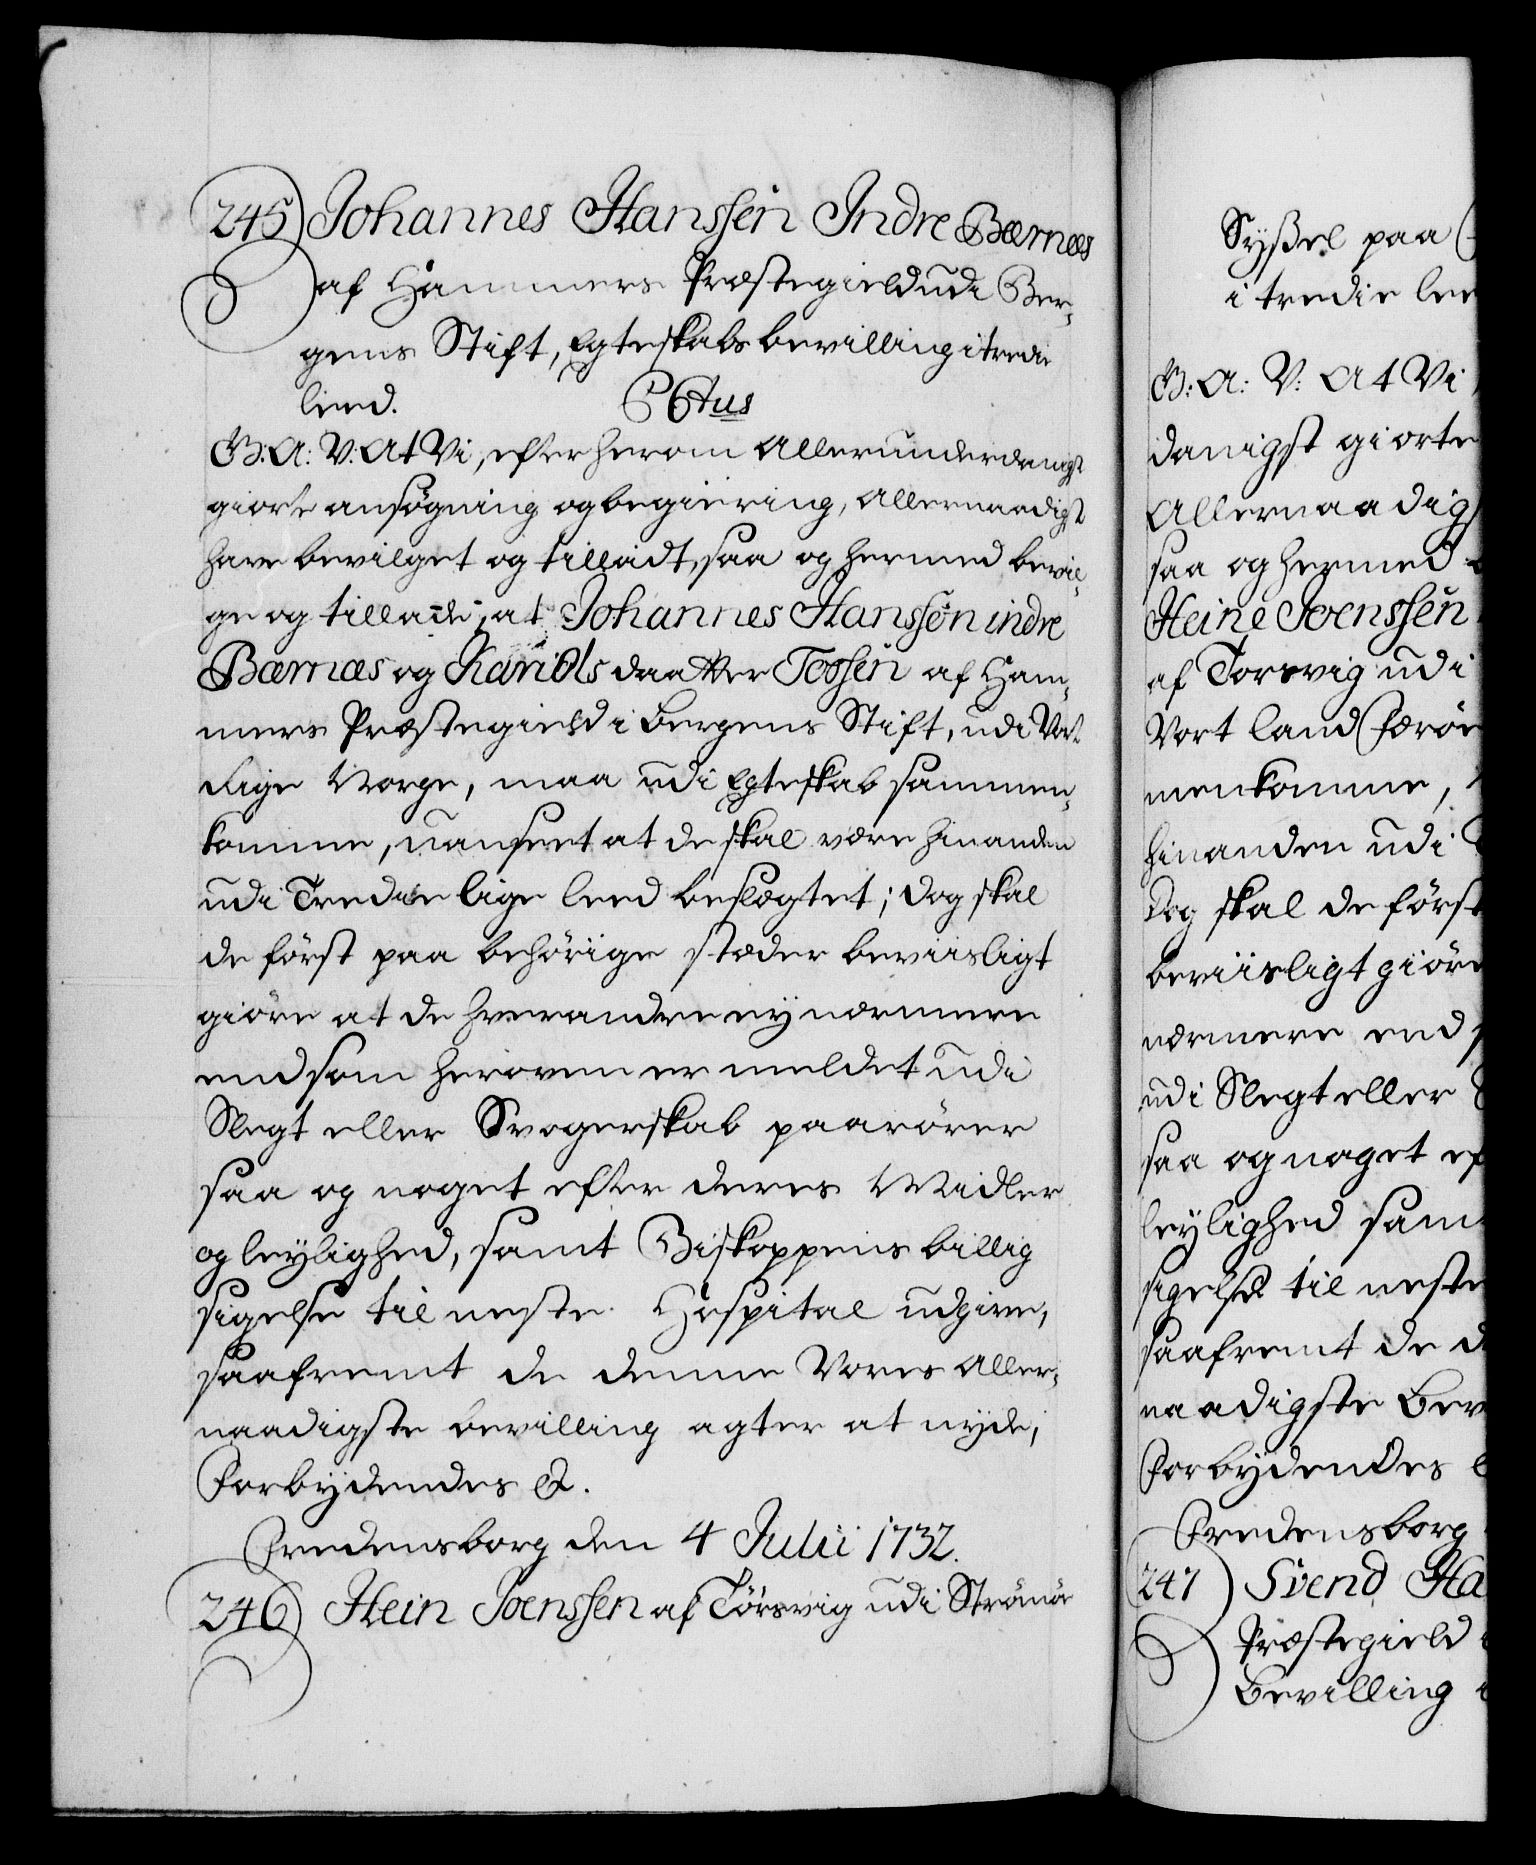 245) Johannes Hanssen Indre Bærnæs
af Hammers Præstegield udi Ber-
gens Stift, Egteskabs bevilling i tredie
leed.
G: A: V: At Vi, efter herom Allerunderdanigst
giorte ansøgning og begiering, Allernaadigst
have bevilget og tilladt, saa og hermed bevil-
ge og tillade, at Johannes Hanssen indre
Bærnæs og Kari Ols daatter Tossen af Ham-
mers Præstegield i Bergens Stift, udi Vort
Rige Norge, maa udi Egteskab sammen-
komme, uanseet at de skal være hinanden
udi Tredie lige leed beslægtet; dog skal
de først paa behörige stæder beviisligt
giöre at de hverandre ey nærmere
end som heroven er meldet udi
Slegt eller Svogerskab paarører
saa og noget efter deres Midler
og leylighed, samt Biskoppens billig
sigelse til neste Hospital udgive,
saafremt de denne Vores Aller-
naadigste bevilling agter at nyde,
Forbydendes &.
Fredensborg den 4 Julii 1732.
246) Hein Joenssen af Törsvig udi Strömöe
Syssel paa
i tredie lee
G: A: V: At Vi
danigst giorte
Allernaadigs
saa og hermed
Heine Joenssen
af Torsvig udi
Vort land Færöe
menkomme,
hinanden udi
Dog skal de först
beviisligt giöre
nærmere end
udi Slegt eller
saa og noget ef
leylighed sam
sigelse til neste
saafremt de d
naadigste Bev
Forbydendes
Fredensborg
247) Svend Ha
Præstegield
Bevilling i